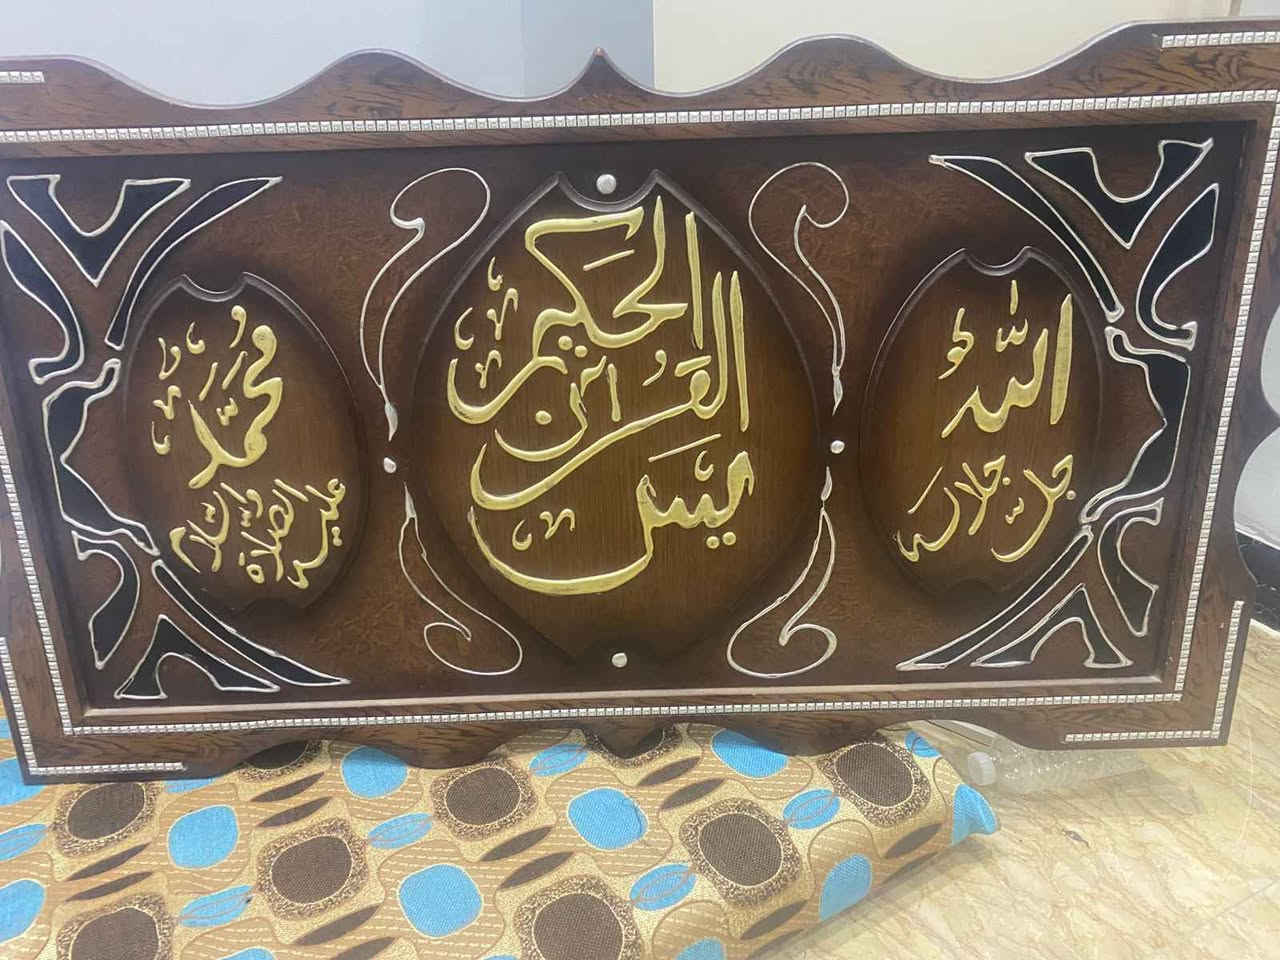 الله
جل جلاله
يس
القرآن
الحكيم
محمد
عليه الصلاة والسلام